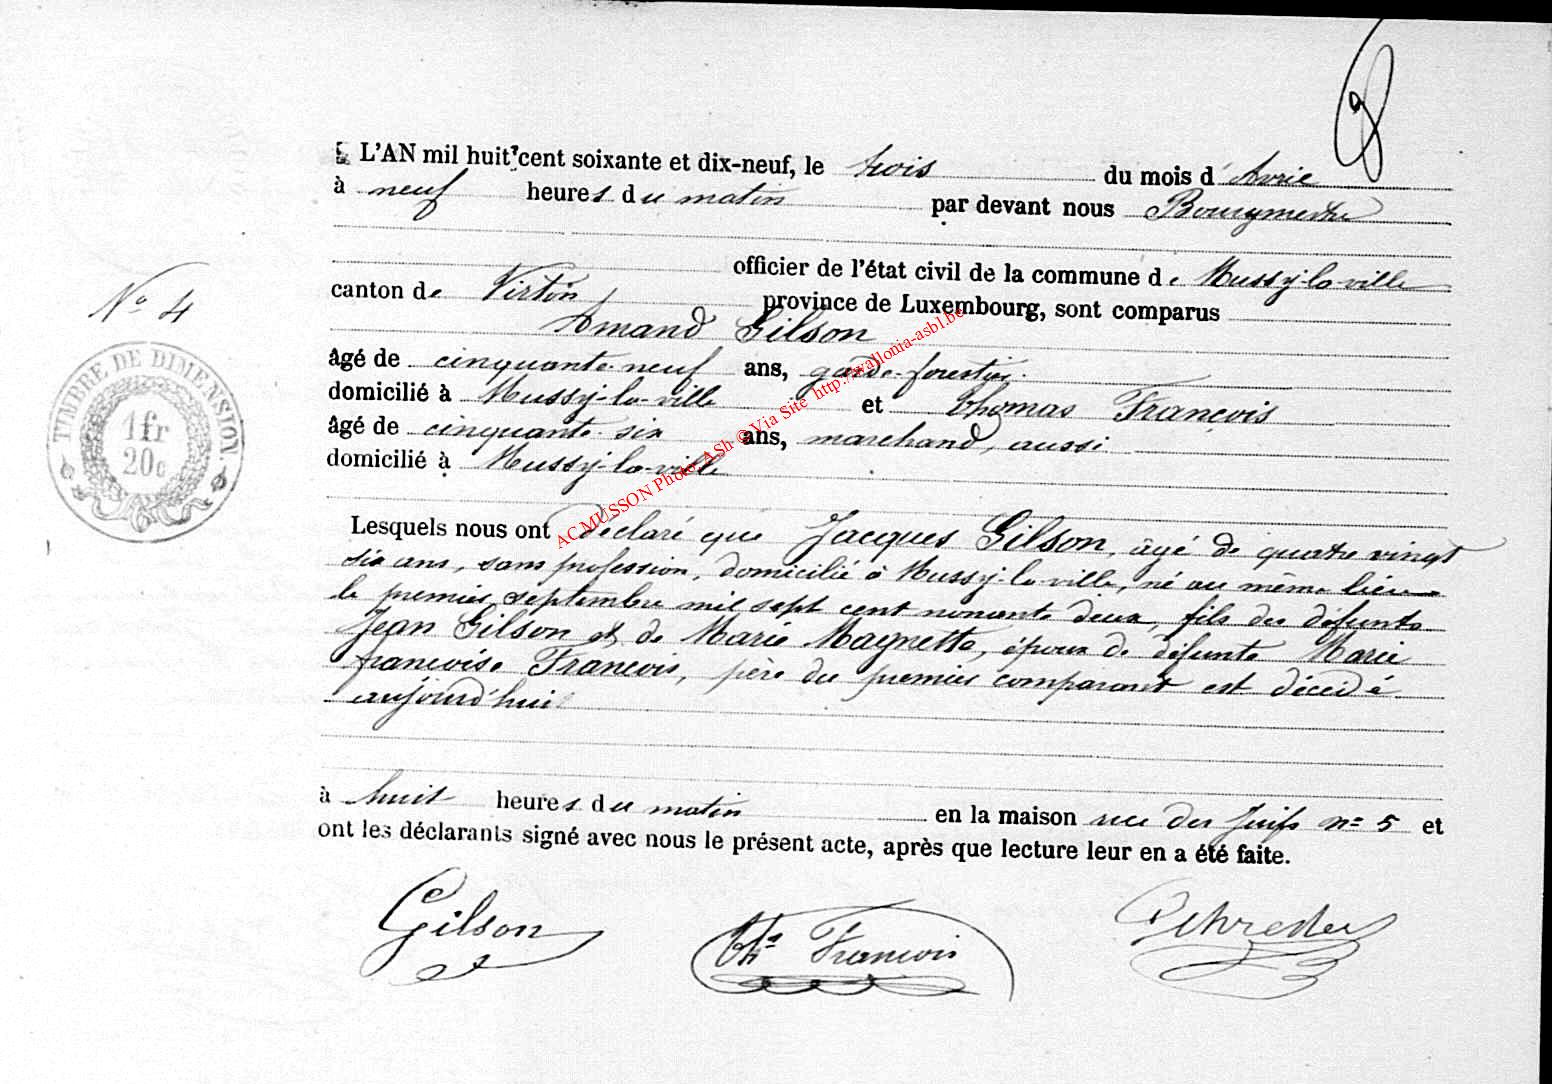 L'AN mil huit cent soixante et dix-neuf, le trois du mois d'Avril
à neuf heures du matin par devant nous Bourgmestre
officier de l'état civil de la commune de Mussy-la-ville
canton de Virton province de Luxembourg, sont comparus
Amand Gilson
âgé de cinquante-neuf ans, garde-forestier.
domicilié à Mussy-la-ville et Thomas François
âgé de cinquante-six ans, marchand, aussi
domicilié à Mussy-la-ville
Lesquels nous ont déclaré que Jacques Gilson, âgé de quatre vingt
six ans, sans profession, domicilié à Mussy-la-ville, né au même lieu
le premier septembre mil sept cent nonante deux, fils des défunts
Jean Gilson et de Marie Magnette, époux de défunte Marie
françoise François, père du premier comparant est décédé
aujourd'hui
à huit heures du matin en la maison rue des Juifs n= 5 et
ont les déclarants signé avec nous le présent acte, après que lecture leur en a été faite.
Gilson Th.s François
No 4
TIMBRE DE DIMENSION
1 fr
20c
AC MUSSON Photo ASh © Via Site http://wallonia-asbl.be